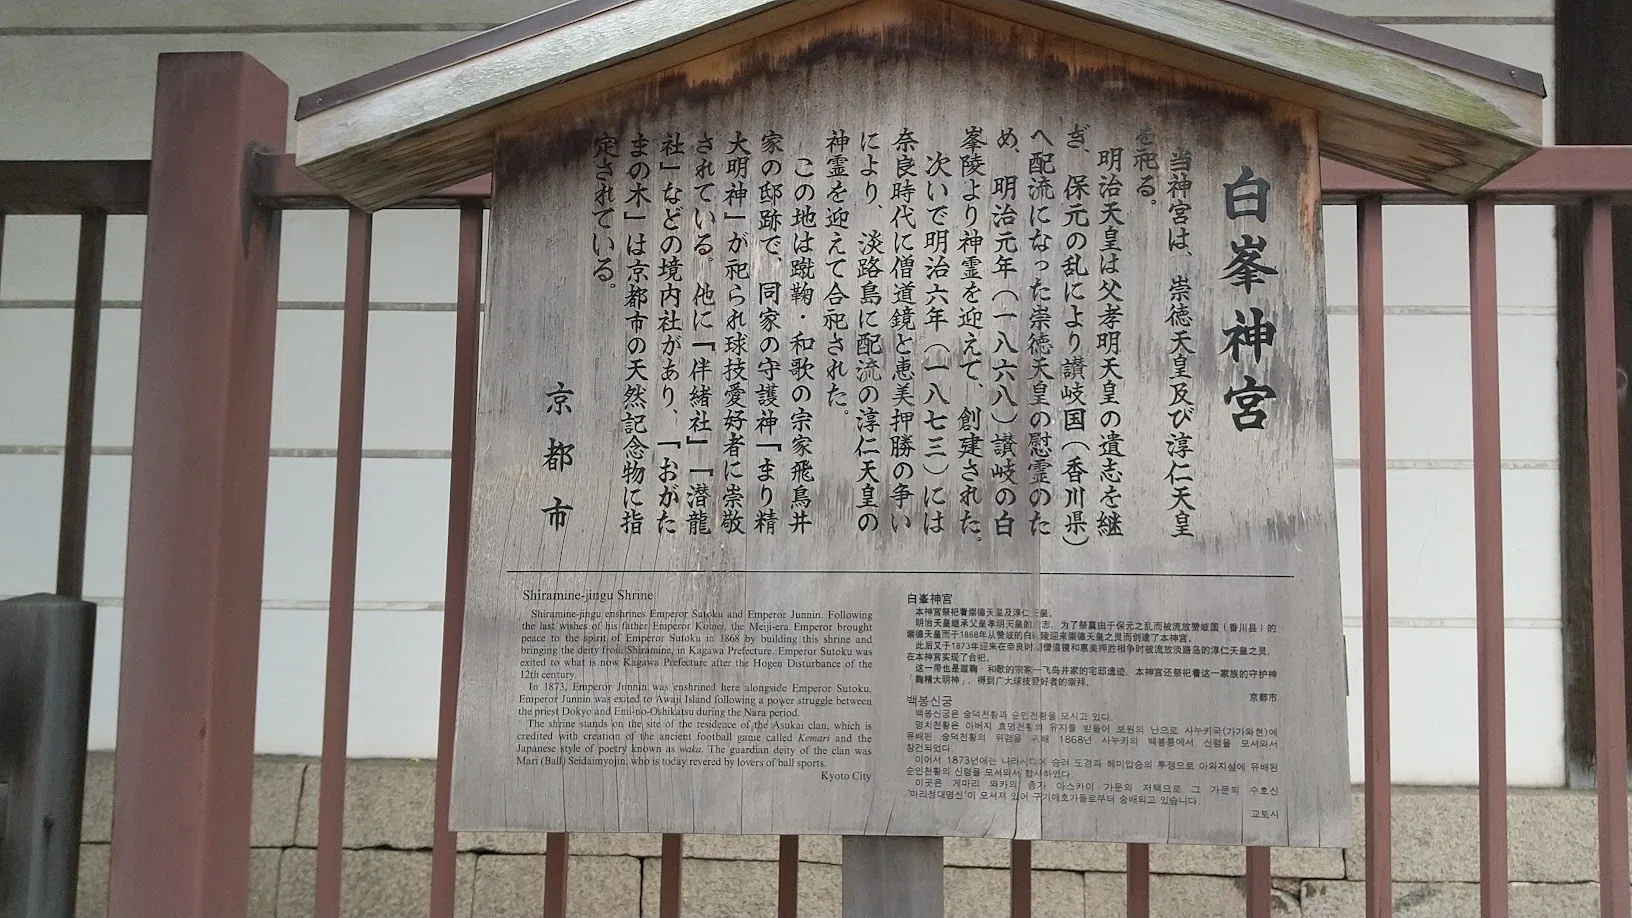 白峯神宮
当神宮は、崇徳天皇及び淳仁天皇
を祀る。
明治天皇は父孝明天皇の遺志を継
ぎ、保元の乱により讃岐国(香川県)
へ配流になった崇徳天皇の慰霊のた
め、明治元年(一八六八)讃岐の白
峯陵より神霊を迎えて、創建された。
次いで明治六年(一八七三)には
奈良時代に僧道鏡と恵美押勝の争い
により、淡路島に配流の淳仁天皇の
神霊を迎えて合祀された。
この地は蹴鞠・和歌の宗家飛鳥井
家の邸跡で、同家の守護神「まり精
大明神」が祀られ球技愛好者に崇敬
されている。他に「伴緒社」「潜龍
社」などの境内社があり、「おがた
まの木」は京都市の天然記念物に指
定されている。
京都市
Shiramine-jingu Shrine
Shiramine-jingu enshrines Emperor Sutoku and Emperor Junnin. Following
the last wishes of his father Emperor Komei, the Meiji-era Emperor brought
peace to the spirit of Emperor Sutoku in 1868 by building this shrine and
bringing the deity from Shiramine, in Kagawa Prefecture. Emperor Sutoku was
exited to what is now Kagawa Prefecture after the Hogen Disturbance of the
12th century.
In 1873, Emperor Junnin was enshrined here alongside Emperor Sutoku.
Emperor Junnin was exited to Awaji Island following a power struggle between
the priest Dokyo and Emi-no-Oshikatsu during the Nara period.
The shrine stands on the site of the residence of the Asukai clan, which is
credited with creation of the ancient football game called Kemari and the
Japanese style of poetry known as waka. The guardian deity of the clan was
Mari (Ball) Seidaimyojin, who is today revered by lovers of ball sports.
Kyoto City
白峯神宮
本神宫祭祀着崇德天皇及淳仁天皇。
明治天皇继承父皇孝明天皇的志，为了祭奠由于保元之乱而被流放赞岐国（香川县）的
崇德天皇而于1868年从赞岐的白陵迎来崇德天皇之灵而创建了本神宫。
此后又于1873年迎来在奈良时僧道镜和惠美押胜相争时被流放淡路岛的淳仁天皇之灵，
在本神宫实现了合祀。
这一带也是蹴鞠・和歌的宗家—飞鸟井家的宅邸遗迹，本神宫还祭祀着这一家族的守护神
「鞠精大明神」，得到广大球技爱好者的崇拜。
京都市
백봉신궁
백봉신궁은 숭덕천황과 순인천황을 모시고 있다.
명치천황은 아버지 효명천황의 유지를 받들어 보원의 난으로 사누키국(가가와현)에
유배된 숭덕천황의 위령을 위해 1868년 사누키의 백봉릉에서 신령을 모셔와서
창건되었다.
이어서 1873년에는 나라시대에 승려 도경과 혜미압승의 투쟁으로 아와지섬에 유배된
순인천황의 신령을 모셔와서 합사하였다.
이곳은 게마리 와카의 종가 아스카이 가문의 저택으로 그 가문의 수호신
'마리정대명신'이 모셔져 있어 구기애호가들로부터 숭배되고 있습니다.
교토시